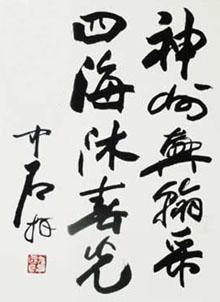 神州舞翰采
四海沐春光
中石